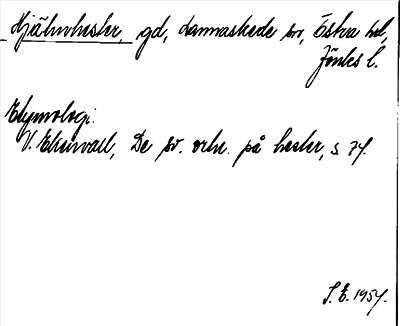 Hjälmhester, gd, Lannaskede sn, Östra hd,
Jönkes l.
Etymologi:
V. Ekenvall, De sv. ortn. på hester, s 74.
S. E. 1957.